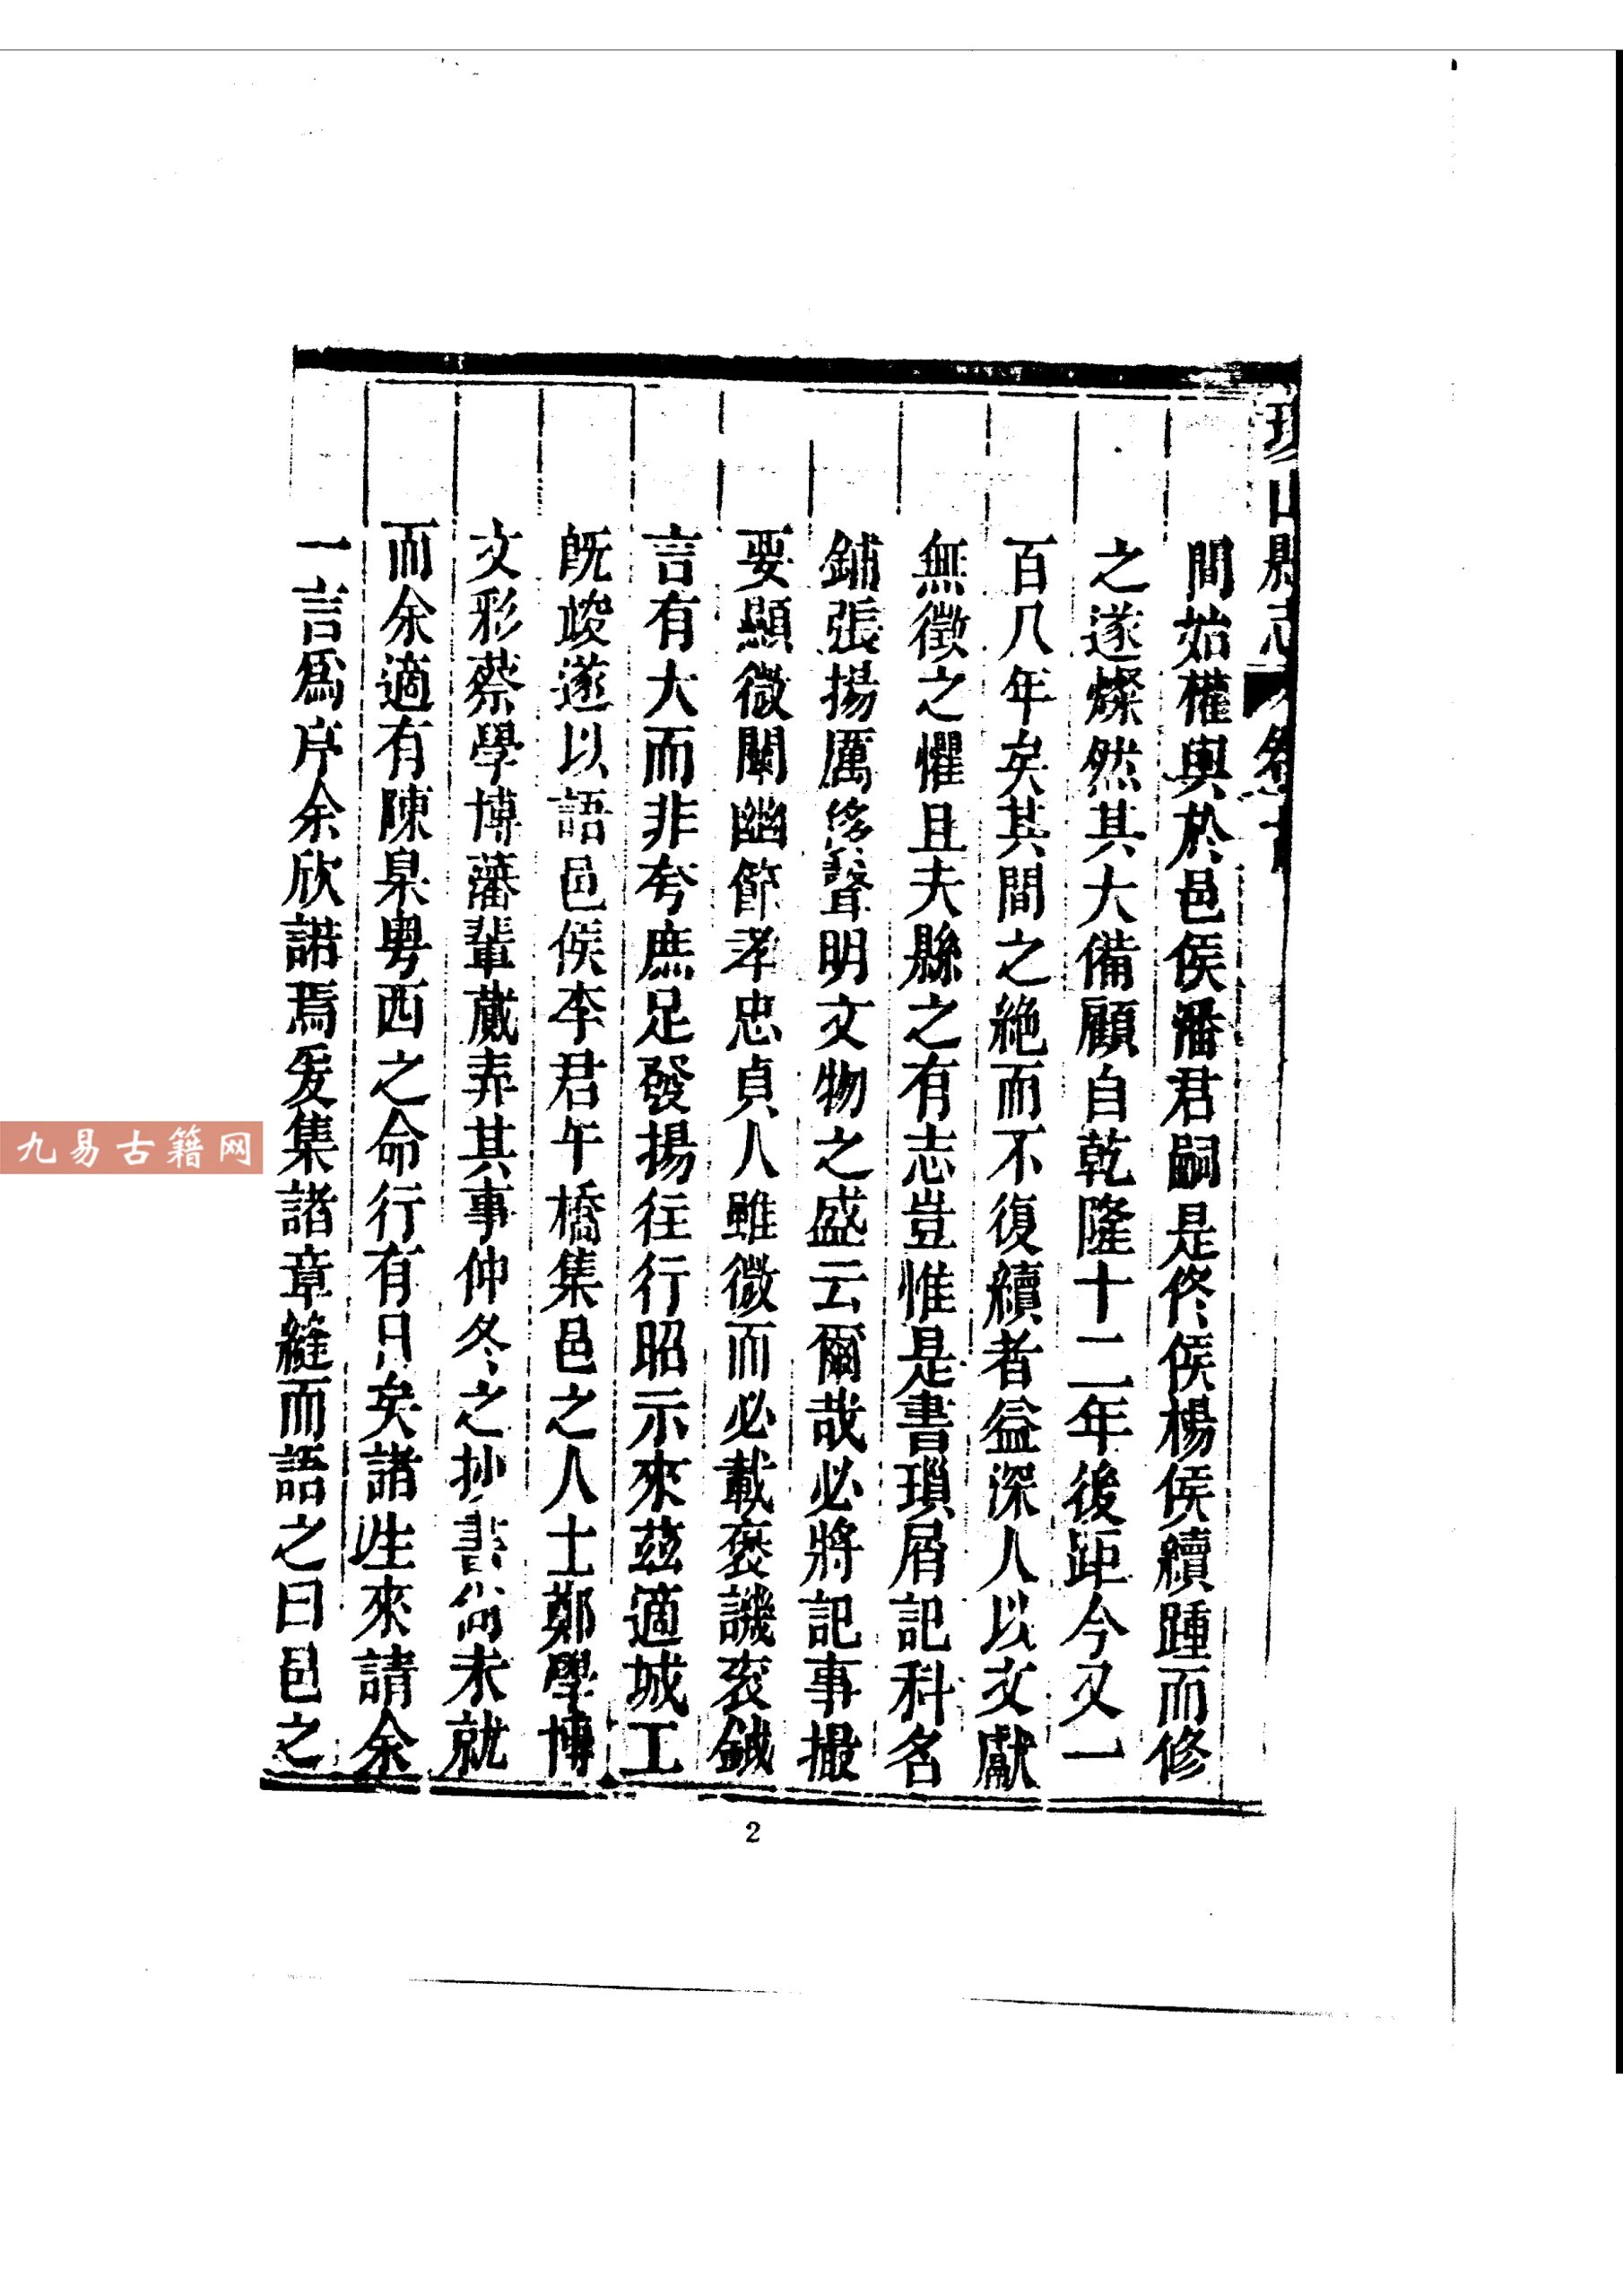 間始權輿於邑侯潘君嗣是佟侯楊侯續踵而修
之遂燦然其大備顧自乾隆十二年後距今又一
百八年矣其間之絶而不復續者益深人以文獻
無徵之懼且夫縣之有志豈惟是書瑣屑記科名
鋪張揚厲侈聲明文物之盛云爾哉必將記事撮
要顯微闡幽節孝忠貞人雖微而必載褒譏衮鉞
言有大而非夸庶足發揚往行昭示來茲適城工
旣竣遂以語邑侯李君午橋集邑之人士鄭學博
文彩蔡學博藩輩蕆弄其事仲冬之抄書尚未就
而余適有陳臬粤西之命行有日矣諸生來請余
一言爲序余欣諾焉爰集諸章縫而語之曰邑之
2
九易古籍网